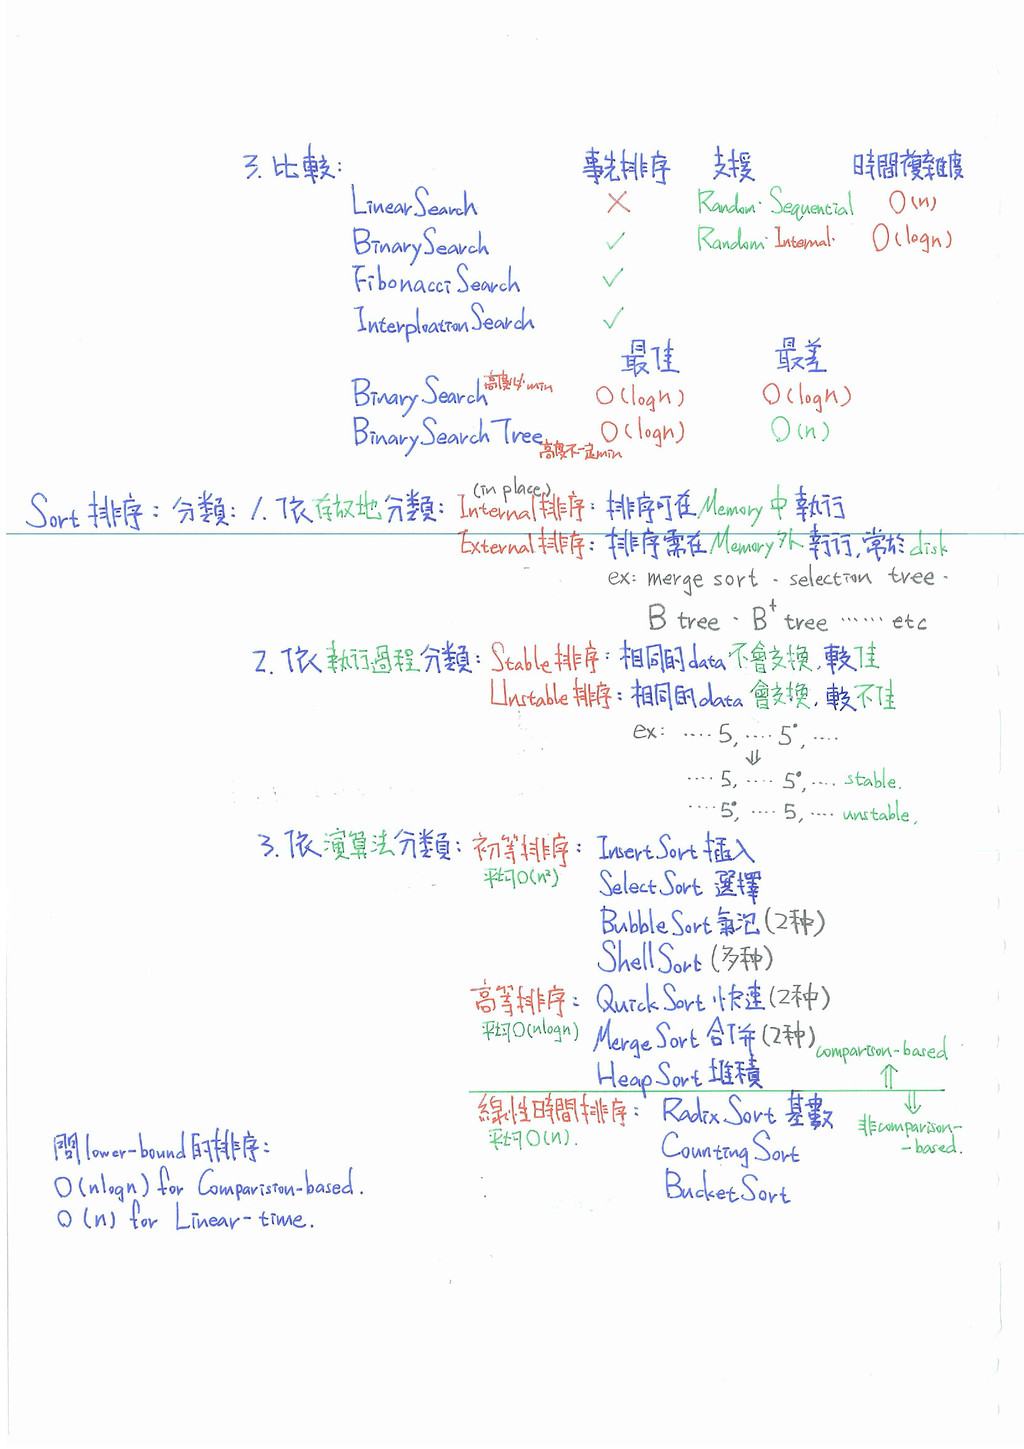 3. 比較: 事先排序 支援 時間複雜度
Linear Search ✕ Random、Sequential O(n)
Binary Search ✓ Random、Internal、 O(logn)
Fibonacci Search ✓
Interploation Search ✓
最佳 最差
Binary Search 高度必min O(logn) O(logn)
Binary Search Tree 高度不一定min O(logn) O(n)
Sort 排序: 分類: 1. 依存放地分類: Internal排序: 排序可在Memory中執行
(in place)
External排序: 排序需在Memory外執行,常於disk
ex: merge sort、selection tree、
B tree、B⁺ tree …… etc
2. 依執行過程分類: Stable排序: 相同的data不會交換,較佳
Unstable排序: 相同的data會交換,較不佳
ex: …. 5, …. 5°, ….
⇓
…. 5, …. 5°, …. stable.
…. 5°, …. 5, …. unstable.
3. 依演算法分類: 初等排序: Insert Sort 插入
平均O(n²) Select Sort 選擇
Bubble Sort 氣泡 (2种)
Shell Sort (多种)
高等排序: Quick Sort 快速 (2种)
平均O(nlogn) Merge Sort 合併 (2种)
comparison-based ⇑
Heap Sort 堆積
線性時間排序: Radix Sort 基數
平均O(n). Counting Sort
Bucket Sort
⇓ 非comparison-
-based.
問lower-bound的排序:
O(nlogn) for Comparision-based.
O(n) for Linear-time.